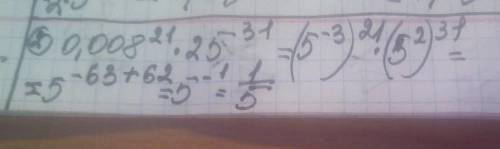 ② 0,008²¹ · 25⁻³¹ = (5⁻³)²¹ · (5²)³¹ =
= 5⁻⁶³⁺⁶² = 5⁻¹ = 1/5